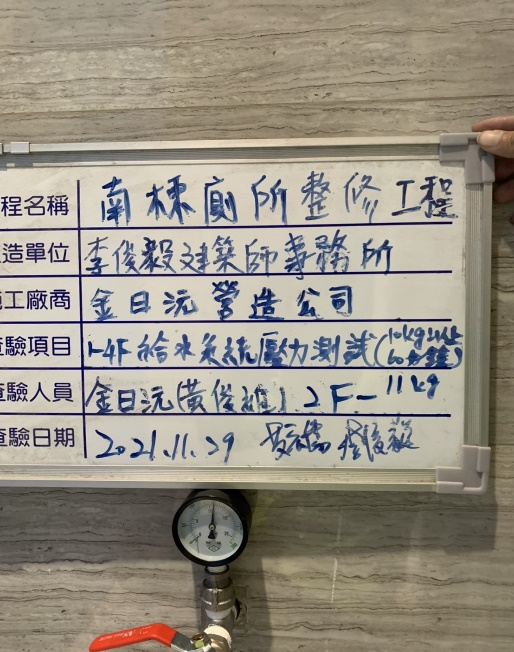 程名稱 南棟廁所整修工程
造單位 李俊毅建築師事務所
工廠商 金日沅營造公司
查驗項目 1-4F給水系統壓力測試(10kg以上 60分鐘)
查驗人員 金日沅(黃俊雄) 2F-11kg
查驗日期 2021.11.29